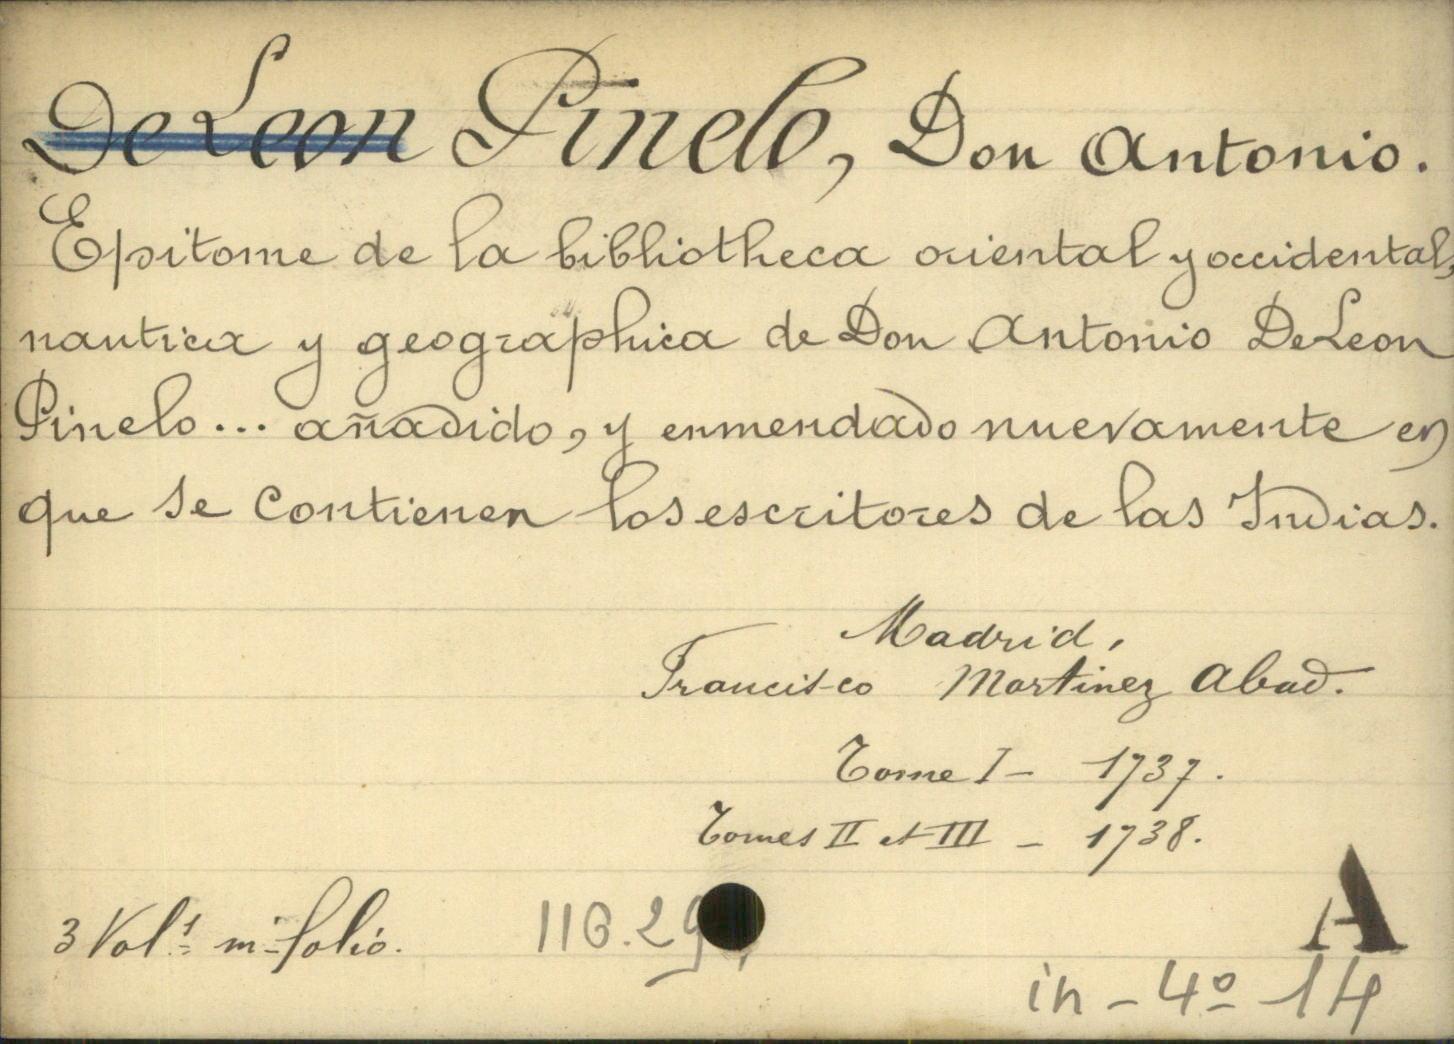 De Leon Pinelo, Don Antonio.
Epitome de la bibliotheca oriental y occidental,
nautica y geographica de Don Antonio De Leon
Pinelo... añadido, y enmendado nuevamente en
que se contienen los escritores de las Indias.
Madrid,
Francisco Martinez Abad.
Tome I - 1737.
Tomes II et III - 1738.
3 Vols in-folio.
A
in-4º 14